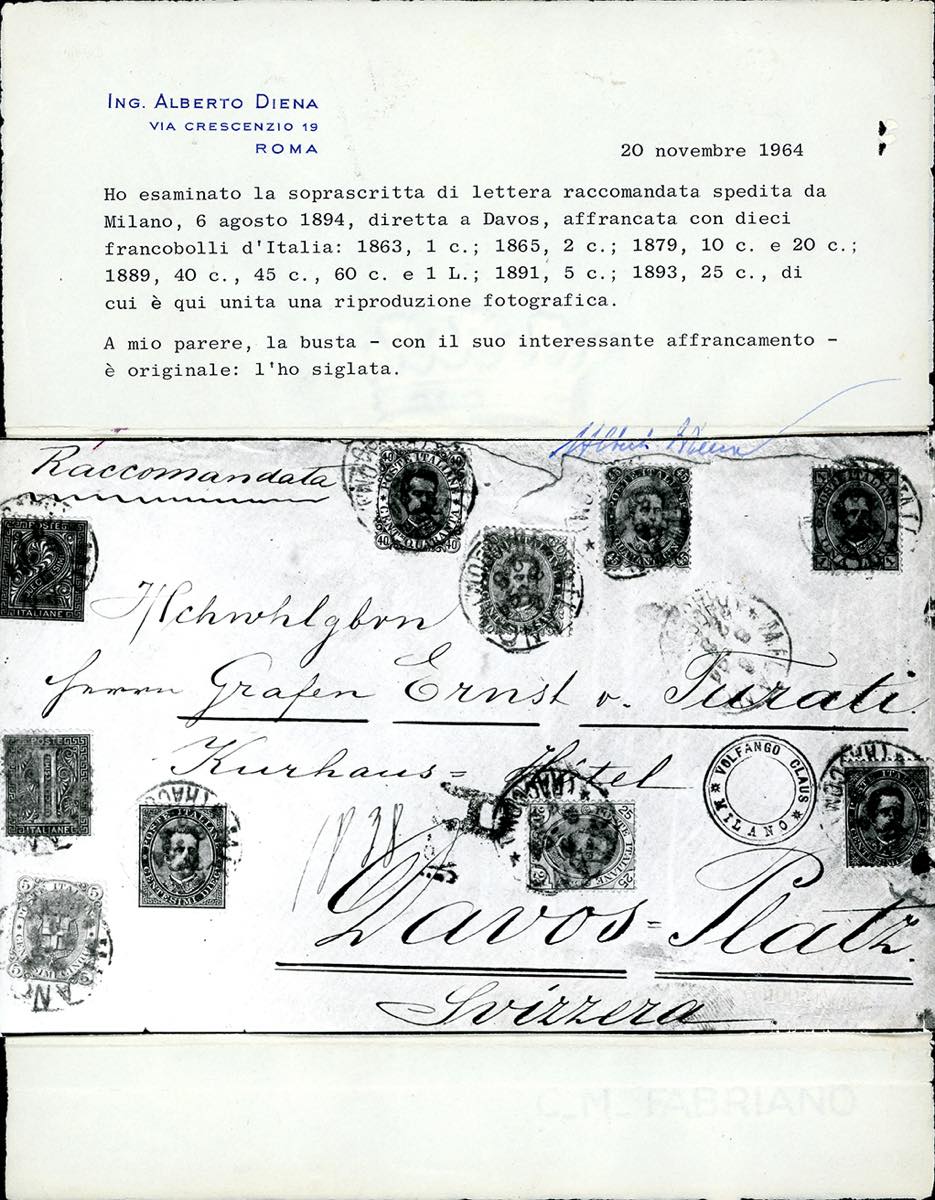 ING. ALBERTO DIENA
VIA CRESCENZIO 19
ROMA
20 novembre 1964
Ho esaminato la soprascritta di lettera raccomandata spedita da
Milano, 6 agosto 1894, diretta a Davos, affrancata con dieci
francobolli d'Italia: 1863, 1 c.; 1865, 2 c.; 1879, 10 c. e 20 c.;
1889, 40 c., 45 c., 60 c. e 1 L.; 1891, 5 c.; 1893, 25 c., di
cui è qui unita una riproduzione fotografica.
A mio parere, la busta - con il suo interessante affrancamento -
è originale: l'ho siglata.
Alberto Diena
Raccomandata
POSTE ITALIANE
CENT. QUARANTA
40 40
POSTE
2
ITALIANE
Hchwhlgbrn
Herrn Grafen Ernst v. Turati.
Kurhaus = Hôtel
POSTE
1
ITALIANE
POSTE ITALIANE
VOLFANGO CLAUS
MILANO
25 25
POSTE ITALIANE
25
1838
Davos = Platz.
5 5
Svizzera
C.M. FABRIANO